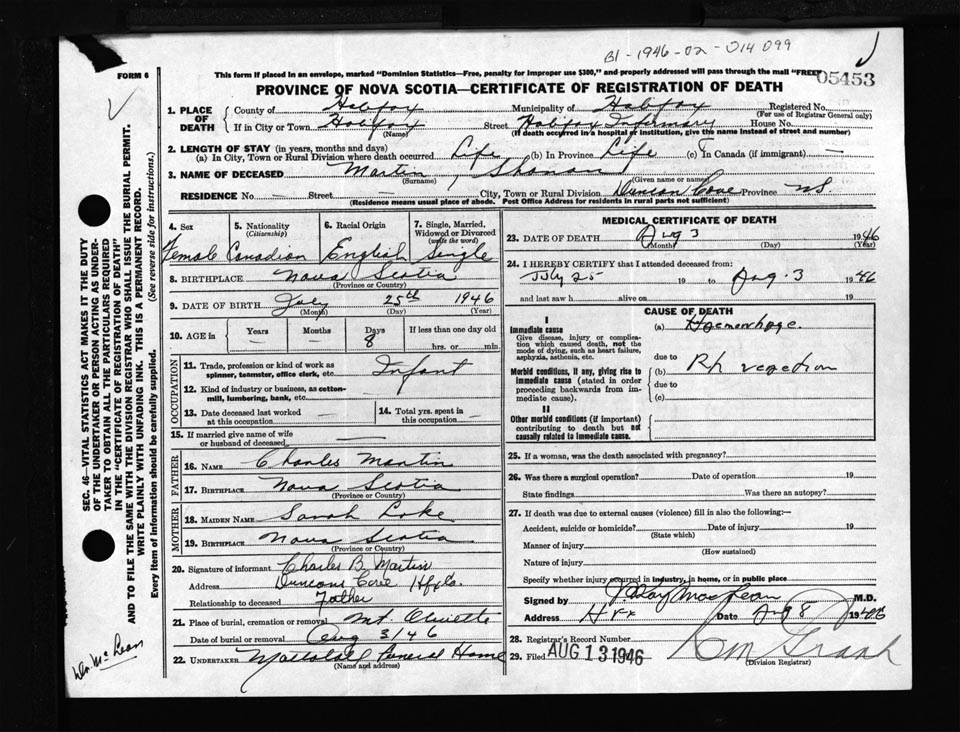 B1-1946-02-014099
FORM 6
This form if placed in an envelope, marked "Dominion Statistics—Free, penalty for improper use $300," and properly addressed will pass through the mail "FREE"
05453
PROVINCE OF NOVA SCOTIA—CERTIFICATE OF REGISTRATION OF DEATH
1. PLACE OF DEATH County of Halifax Municipality of Halifax Registered No.
(For use of Registrar General only)
If in City or Town Halifax Street Halifax Infirmary House No.
(Name) (If death occurred in a hospital or institution, give the name instead of street and number)
2. LENGTH OF STAY (in years, months and days)
(a) In City, Town or Rural Division where death occurred Life (b) In Province Life (c) In Canada (if immigrant) —
3. NAME OF DECEASED Martin, Sharon
(Surname) (Given name or names)
RESIDENCE No. — Street — City, Town or Rural Division Duncan Cove Province N.S.
(Residence means usual place of abode. Post Office Address for residents in rural parts not sufficient)
SEC. 46—VITAL STATISTICS ACT MAKES IT THE DUTY
OF THE UNDERTAKER OR PERSON ACTING AS UNDER-
TAKER TO OBTAIN ALL THE PARTICULARS REQUIRED
IN THE "CERTIFICATE OF REGISTRATION OF DEATH"
AND TO FILE THE SAME WITH THE DIVISION REGISTRAR WHO SHALL ISSUE THE BURIAL PERMIT.
WRITE PLAINLY WITH UNFADING INK. THIS IS A PERMANENT RECORD.
Every item of information should be carefully supplied. (See reverse side for instructions.)
4. Sex 5. Nationality 6. Racial Origin 7. Single, Married,
(Citizenship) Widowed or Divorced
(write the word)
Female Canadian English Single
8. BIRTHPLACE Nova Scotia
(Province or Country)
9. DATE OF BIRTH July 25th 1946
(Month) (Day) (Year)
10. AGE in Years Months Days If less than one day old
— — 8 hrs. or min.
OCCUPATION
11. Trade, profession or kind of work as
spinner, teamster, office clerk, etc. Infant
12. Kind of industry or business, as cotton-
mill, lumbering, bank, etc.
13. Date deceased last worked
at this occupation —
14. Total yrs. spent in
this occupation —
15. If married give name of wife
or husband of deceased —
FATHER
16. NAME Charles Martin
17. BIRTHPLACE Nova Scotia
(Province or Country)
MOTHER
18. MAIDEN NAME Sarah
19. BIRTHPLACE Nova Scotia
(Province or Country)
20. Signature of informant Charles B. Martin
Address Duncans Cove Hfx Co.
Relationship to deceased Father
21. Place of burial, cremation or removal Mt. Olivette
Date of burial or removal Aug 3/46
22. UNDERTAKER Mattatall Funeral Home
(Name and address)
MEDICAL CERTIFICATE OF DEATH
23. DATE OF DEATH Aug 3 1946
(Month) (Day) (Year)
24. I HEREBY CERTIFY that I attended deceased from:
July 25 19 to Aug. 3 1946
and last saw h alive on 19
CAUSE OF DEATH
I
Immediate cause (a) Haemorhage.
Give disease, injury or complica-
tion which caused death, not the
mode of dying, such as heart failure,
asphyxia, asthenia, etc. due to
Morbid conditions, if any, giving rise to (b) Rh reaction
immediate cause (stated in order due to
proceeding backwards from im-
mediate cause). (c)
II
Other morbid conditions (if important)
contributing to death but not
causally related to immediate cause.
25. If a woman, was the death associated with pregnancy?
26. Was there a surgical operation? Date of operation 19
State findings Was there an autopsy?
27. If death was due to external causes (violence) fill in also the following:—
Accident, suicide or homicide? Date of injury 19
(State which)
Manner of injury
(How sustained)
Nature of injury
Specify whether injury occurred in industry, in home, or in public place
Signed by J. Ray MacLean M.D.
Address Hfx Date Aug 8 1946
28. Registrar's Record Number
29. Filed AUG 13 1946
(Division Registrar)